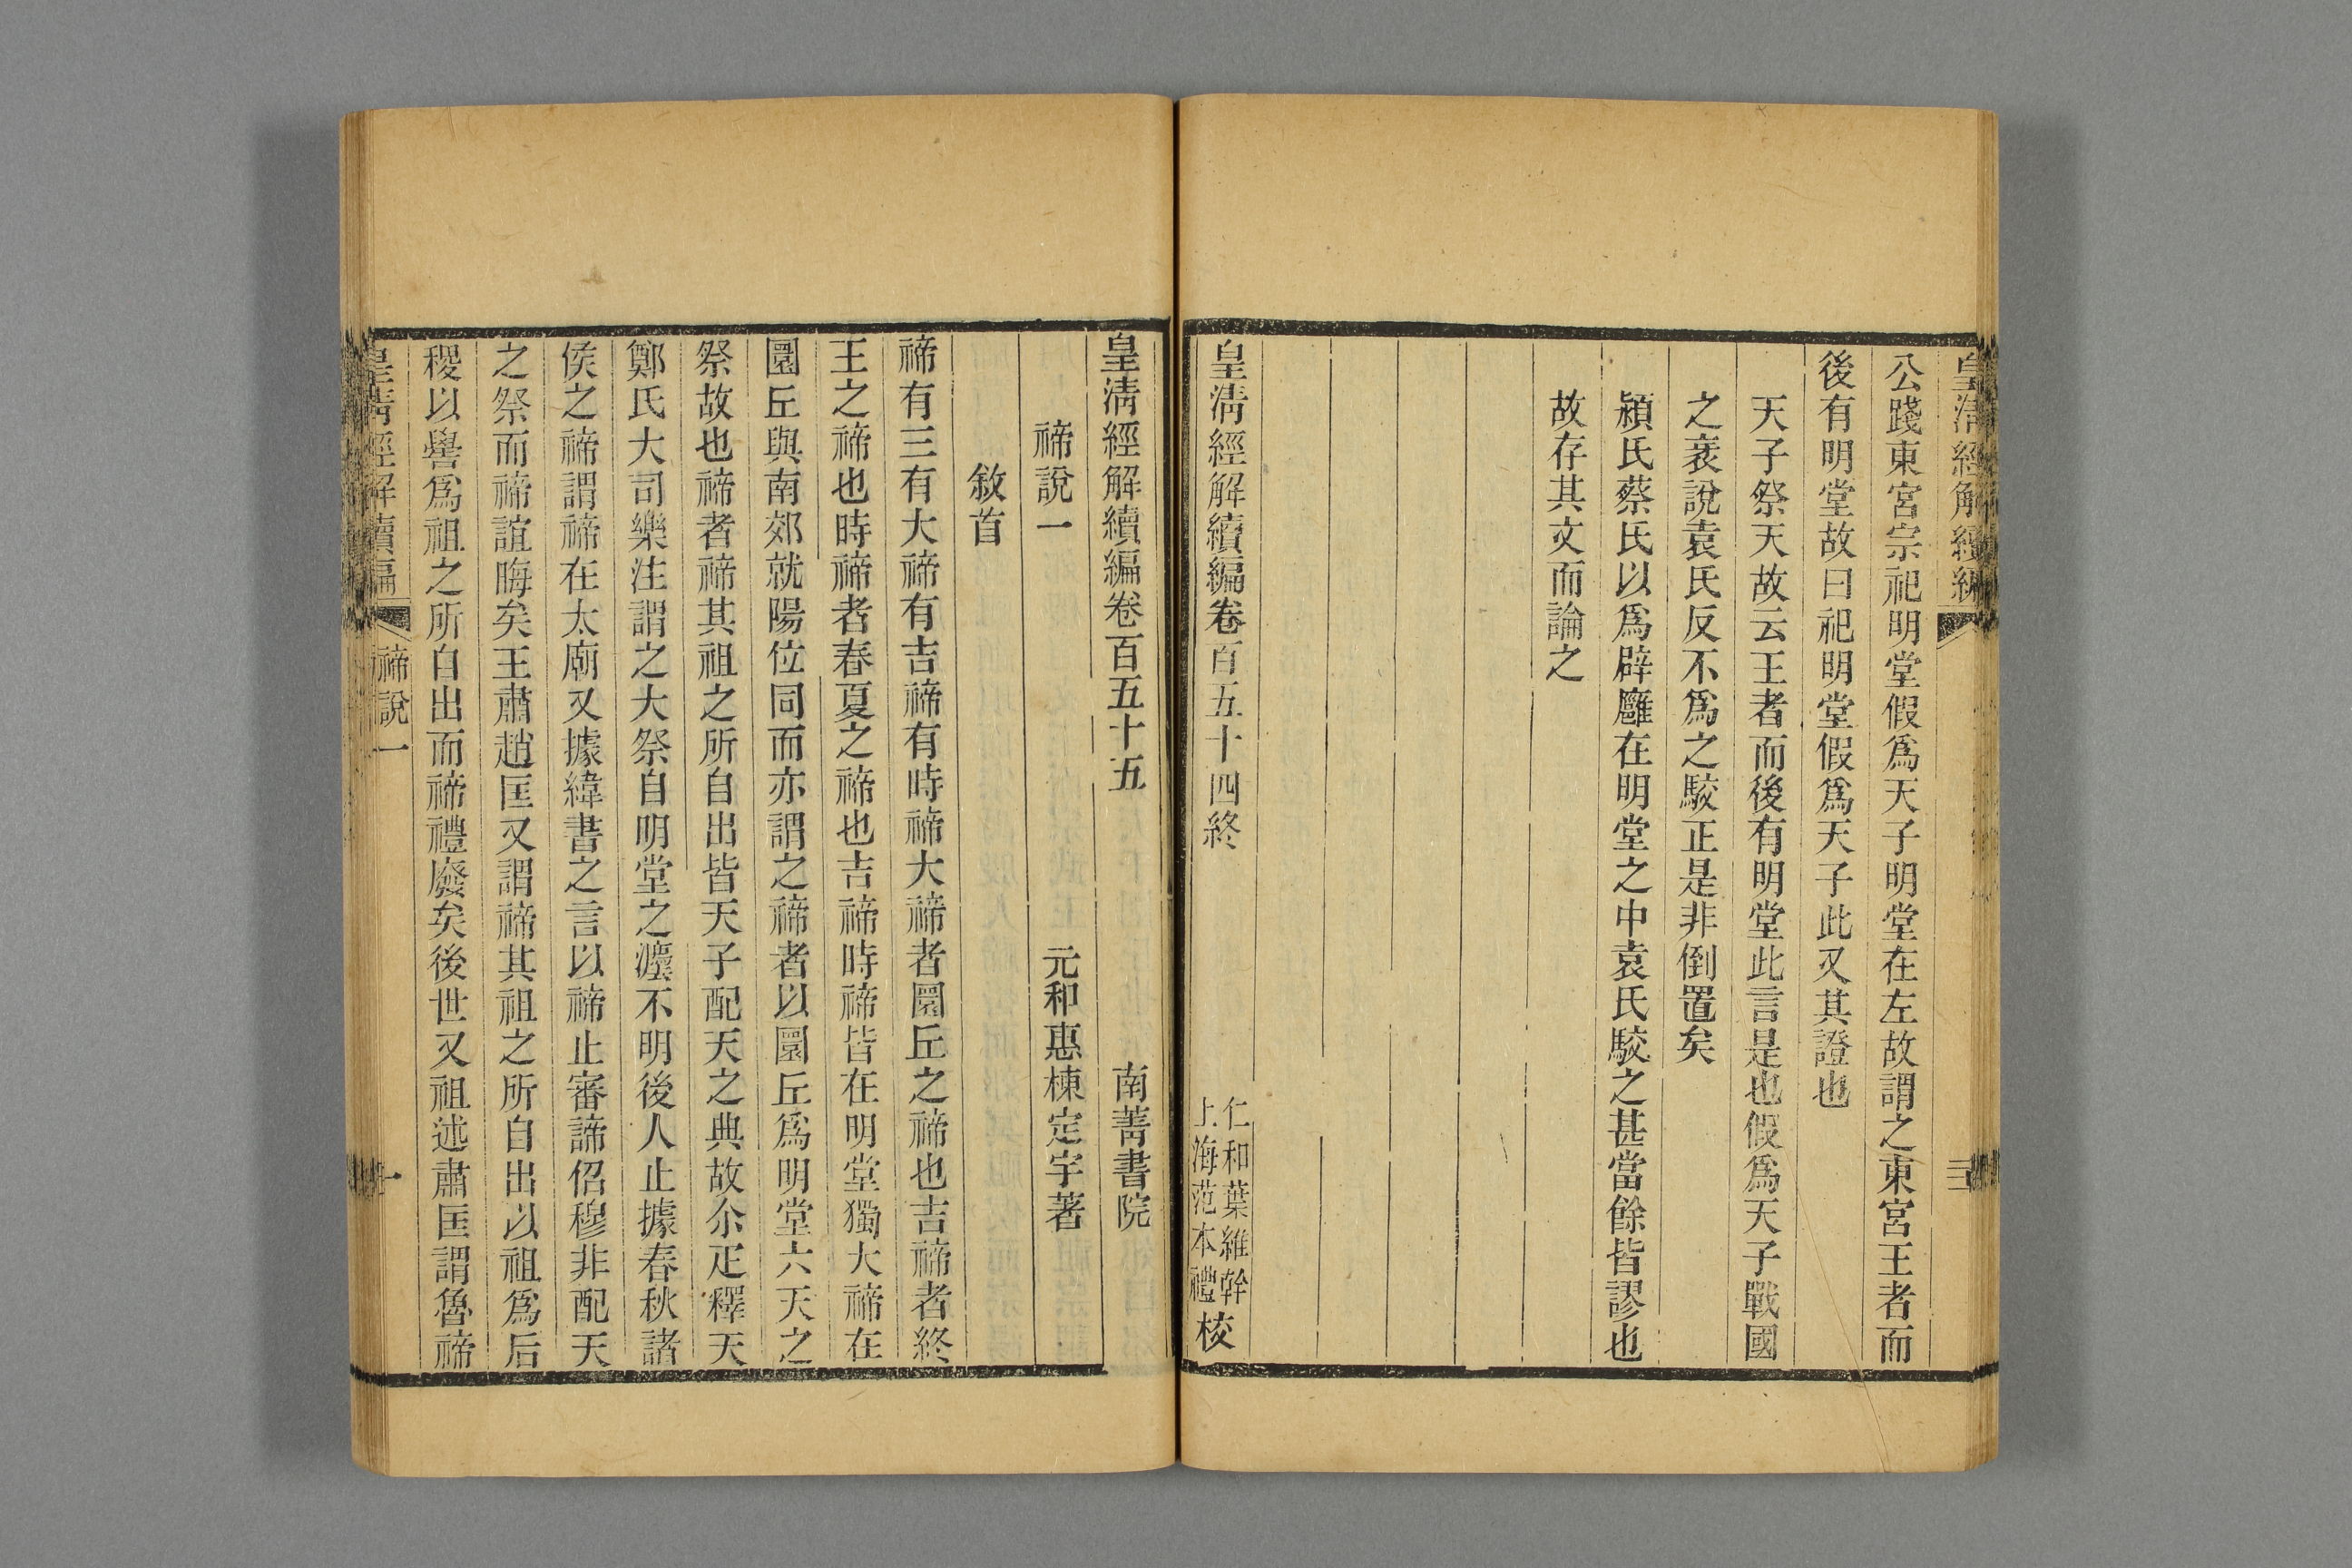 皇清經解續編
三
公踐東宮宗祀明堂假爲天子明堂在左故謂之東宮王者而
後有明堂故曰祀明堂假爲天子此又其證也
天子祭天故云王者而後有明堂此言是也假爲天子戰國
之衺說袁氏反不爲之駮正是非倒置矣
潁氏蔡氏以爲辟廱在明堂之中袁氏駮之甚當餘皆謬也
故存其文而論之
皇清經解續編卷百五十四終
仁和葉維幹
上海范本禮
校
皇清經解續編卷百五十五
南菁書院
禘說一
元和惠棟定宇著
敘首
禘有三有大禘有吉禘有時禘大禘者圜丘之禘也吉禘者終
王之禘也時禘者春夏之禘也吉禘時禘皆在明堂獨大禘在
圜丘與南郊就陽位同而亦謂之禘者以圜丘爲明堂六天之
祭故也禘者禘其祖之所自出皆天子配天之典故尒疋釋天
鄭氏大司樂注謂之大祭自明堂之灋不明後人止據春秋諸
侯之禘謂禘在太廟又據緯書之言以禘止審諦佋穆非配天
之祭而禘誼晦矣王肅趙匡又謂禘其祖之所自出以祖爲后
稷以嚳爲祖之所自出而禘禮廢矣後世又祖述肅匡謂魯禘
皇清經解續編
禘說一
一